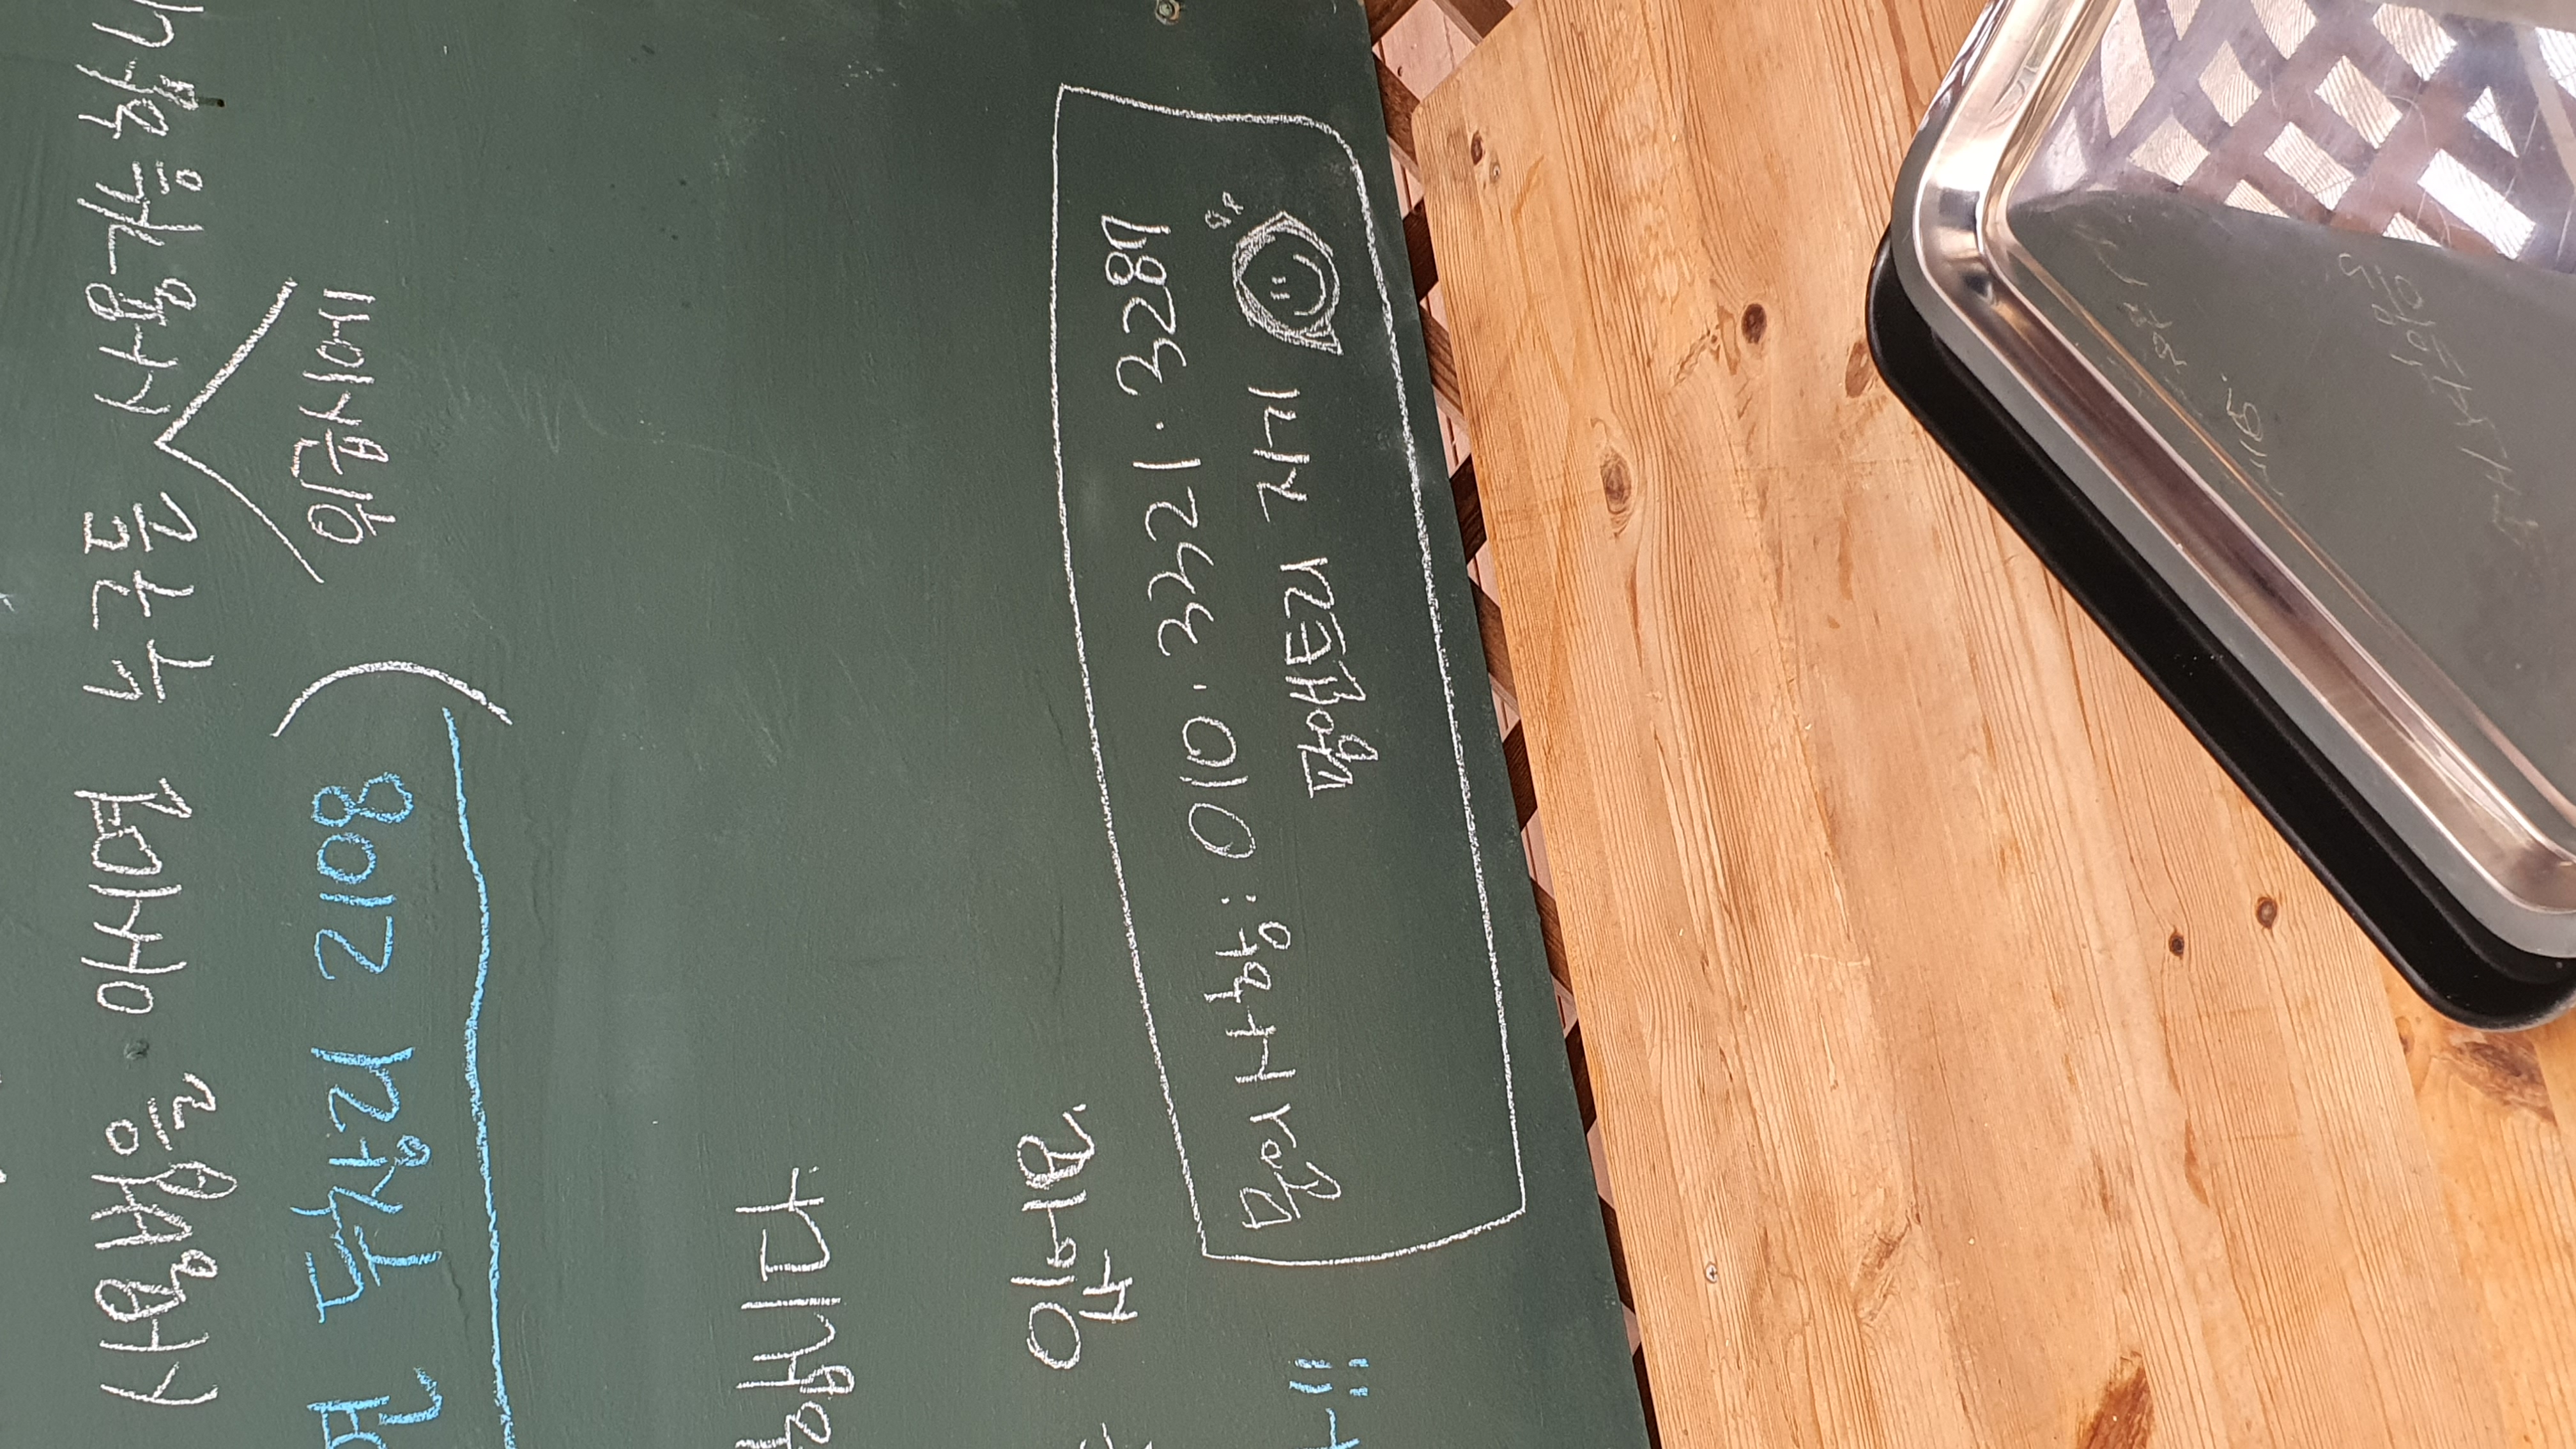 사용법을 아시면 누구든 사용가능합니
위급시에
면 두창리 2108)
합니다.
있어요.
!!
문의사항: 010. 3321. 3287
팜앤트리 지기